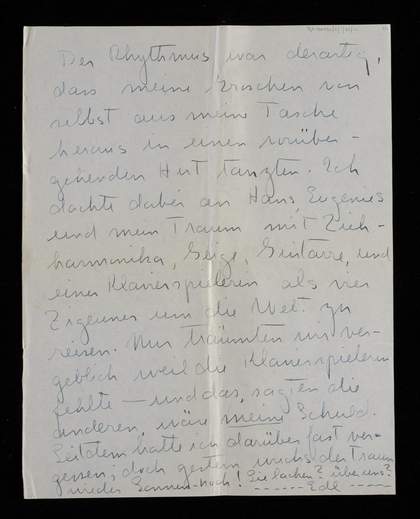 Der Rhythmus war derartig,
dass meine Groschen von
selbst aus meine Tasche
heraus in einen vorüber-
gehenden Hut tanzten. Ich
dachte dabei an Hans, Eugenies
und mein Traum mit Zieh-
harmonika, Geige, Guitarre, und
einer Klavierspielerin als vier
Zigeuner um die Welt zu
reisen. Nur träumten wir ver-
geblich weil die Klavierspielerin
fehlte — und das, sagten die
anderen, wäre meine Schuld.
Seitdem hatte ich darüber fast ver-
gessen; doch gestern wuchs der Traum
wieder Sonnen-hoch! Sie lachen? über uns?
------ Edl ----